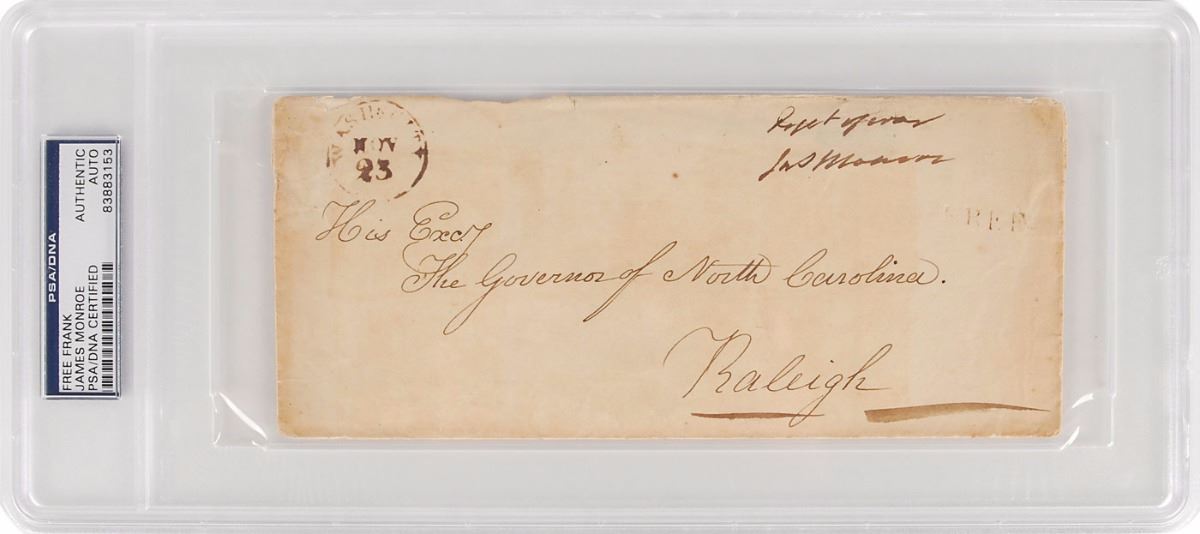 PSA/DNA
FREE FRANK
JAMES MONROE
PSA/DNA CERTIFIED
AUTHENTIC
AUTO
83883153
NOV
23
Dept of war
Jas Monroe
FREE
His Excy
The Governor of North Carolina.
Raleigh